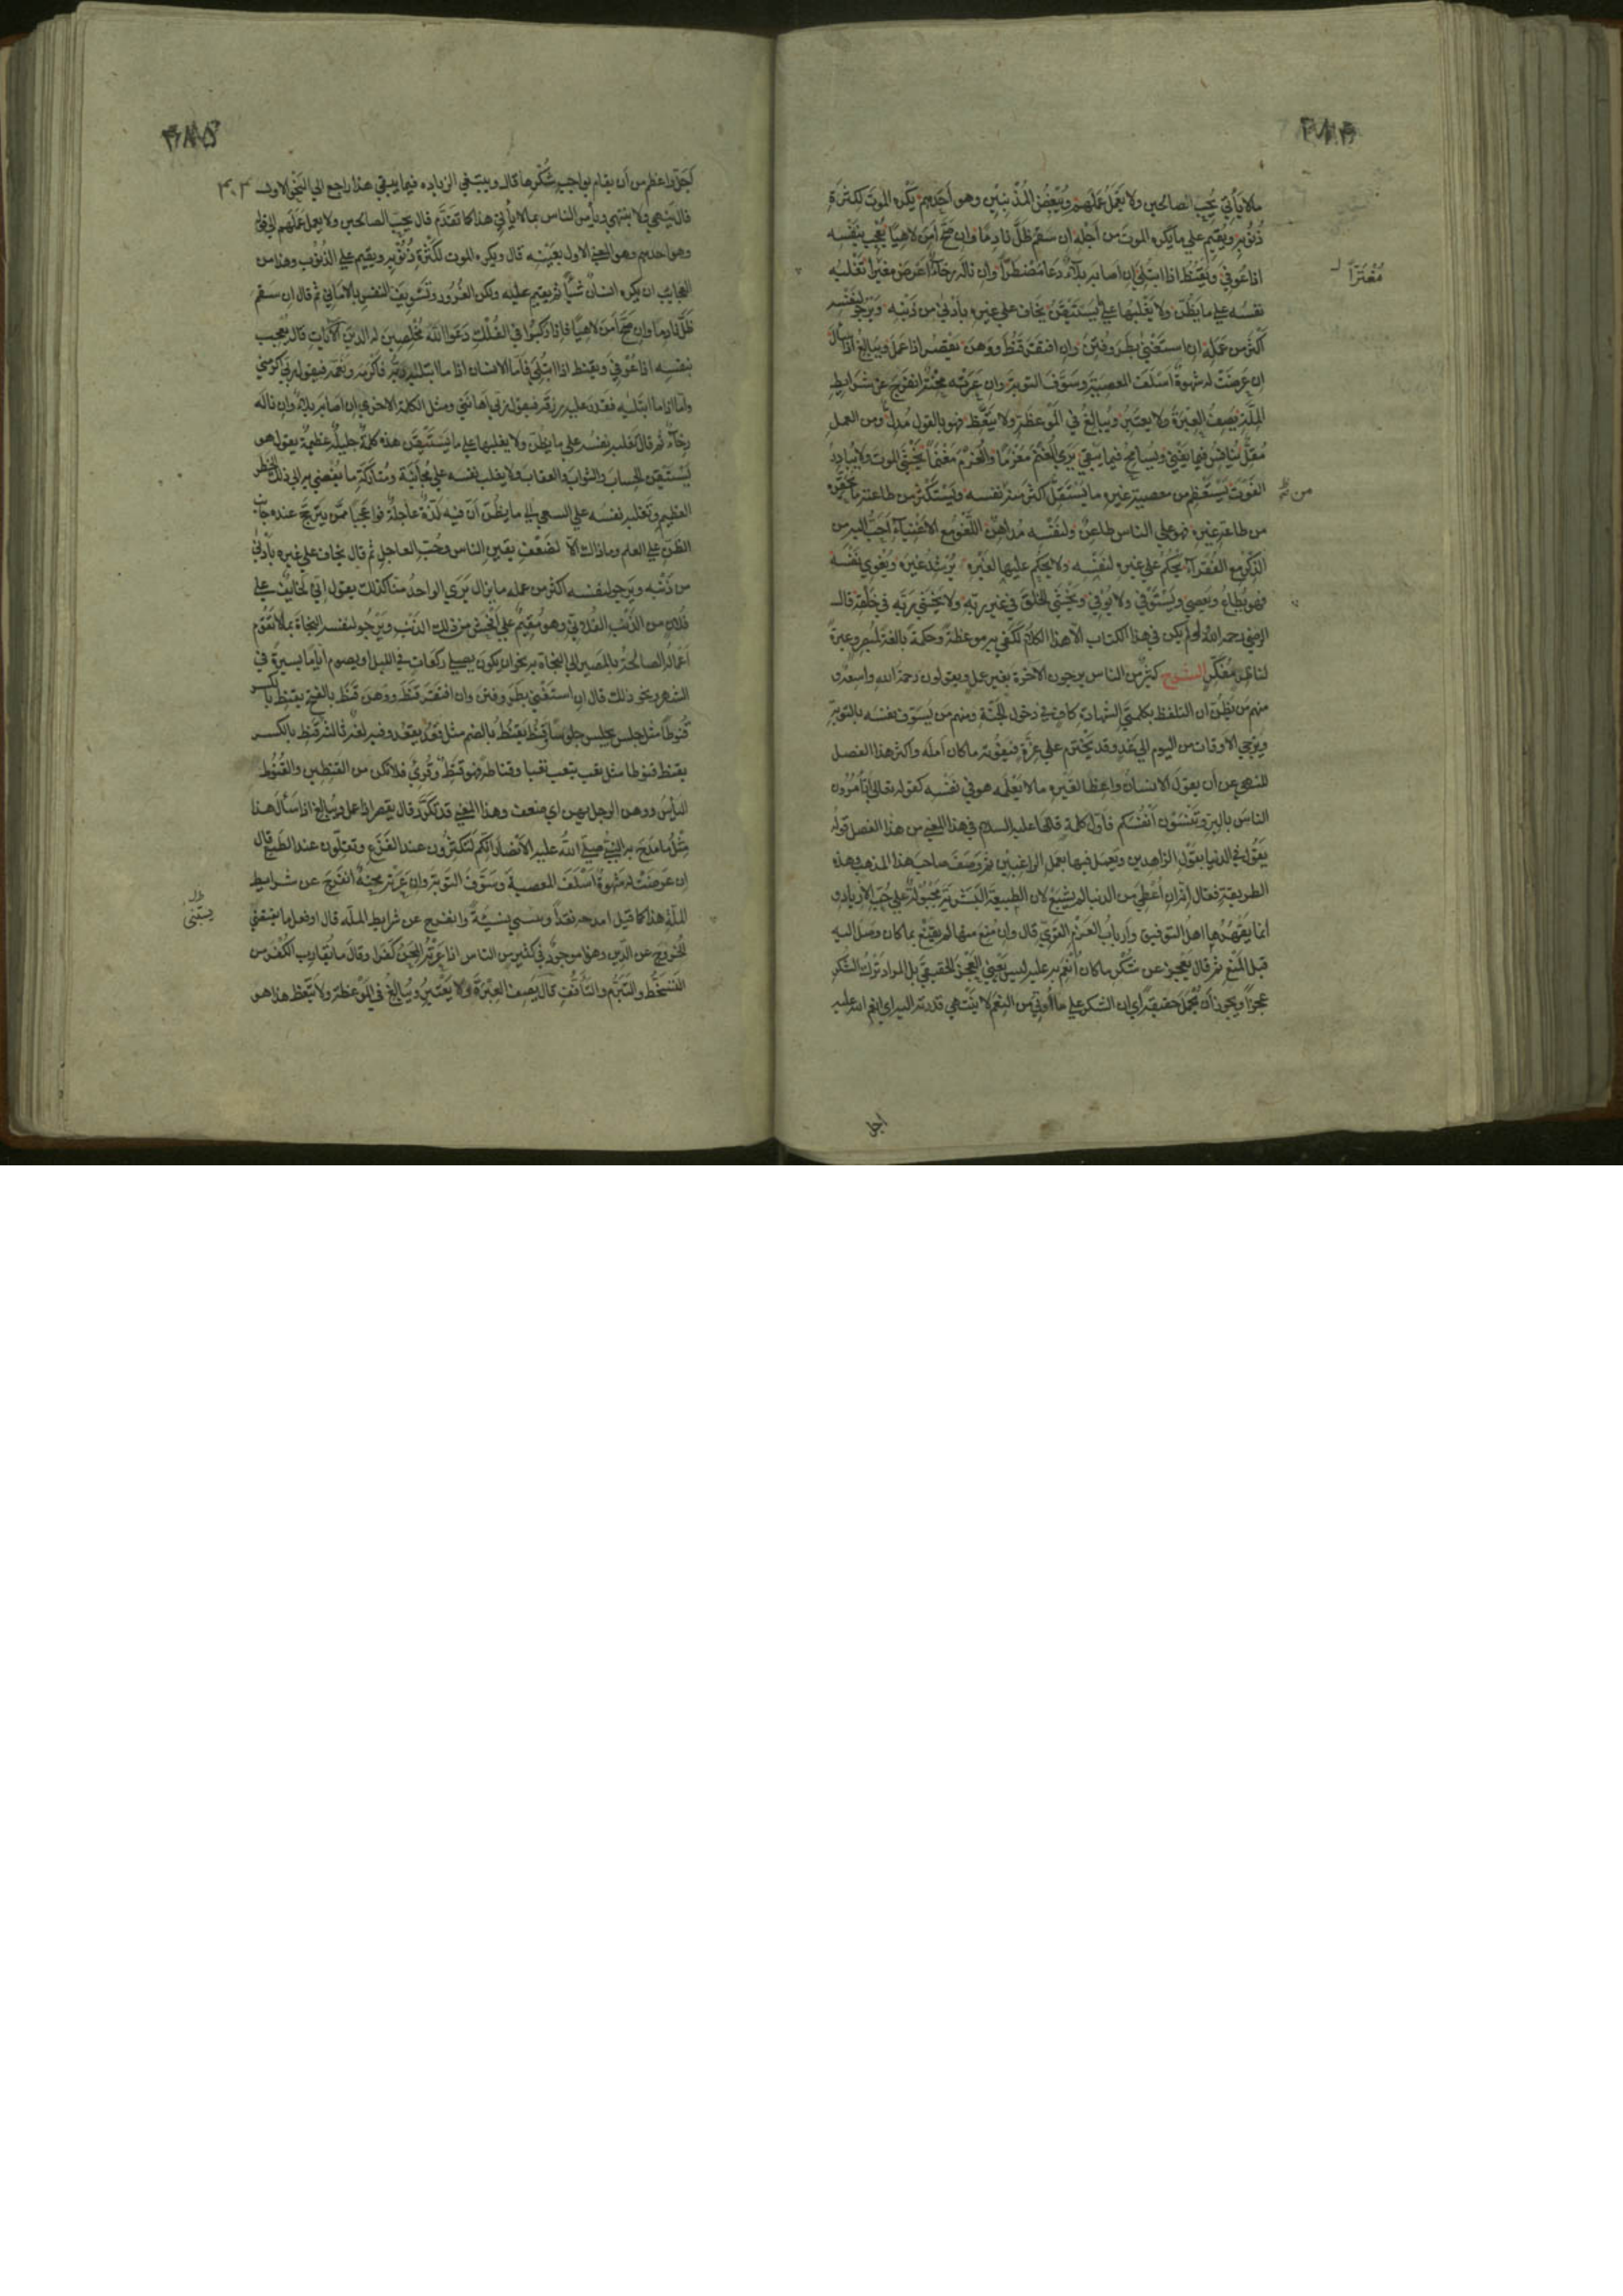 مالايأتي يُحِبّ الصالحين ولا يَعْمَلُ عَمَلَهم ويُبْغِضُ المُذْنِبينَ وهو أحَدُهم يَكْره الموتَ لكثرةِ
ذُنُوبِه ويُقيم علي مايَكْره الموتَ من أجْله ان سَقِم ظَلَّ نادِمًا وان صَحَّ أمِنَ لاهيًا يُعْجَب بنَفْسِه
اذا عُوفيَ ويَقْنَطُ اذا ابتُلِيَ ان أصابه بلاءٌ دَعا مُضْطَرًّا وان ناله رَخاءٌ أعرَض مغترا تَغْلِبُه
مُغْتَرًّا
نفسُه علي ما يَظُنّ ولا يَغْلِبُها علي مايَسْتَيْقِنُ يخاف علي غيره بأدْنَي من ذَنْبِه ويَرْجو لنفسه
أكثَر من عَمَلِه ان استَغْنَي بَطِرَ وفُتِنَ وان افتَقَرَ قَنَطَ ووَهَنَ يقصّر اذا عَمِلَ ويُبالِغُ اذا سأل
ان عَرَضَتْ له شَهْوةٌ أسْلَفَ المعصيةَ وسَوَّفَ التوبةَ وان عَرَتْه مِحْنةٌ انفَرَجَ عن شَرايطِ
المِلَّةِ يَصِفُ العِبْرَةَ ولا يعتَبِرُ ويُبالِغُ في المَوْعِظةِ ولا يَتَّعِظُ فهو بالقول مُدِلٌّ ومن العمل
مُقِلٌّ يُنافِسُ فيما يَفْنَي ويُسامِحُ فيما يَبْقَي يَرَي الغُنْمَ مَغْرَمًا والغُرْمَ مَغْنَمًا يَخْشَي الموتَ ولا يُبادِرُ
الفَوْتَ يَسْتَعْظِم من معصيةِ غيرِه ما يَسْتَقِلُّ أكثَرَ منه من نفسه ويَسْتَكْثِر من طاعته ما يحقره
من طاعةِ غيرِه فهو علي الناس طاعِنٌ ولنَفْسِه مُداهِنٌ اللَّغْوُ مع الاغنياءِ أحَبُّ اليه من
الذِكْرِ مع الفُقَراءِ يَحْكُم علي غيرِه لنَفْسِه ولا يَحْكُم عليها لغَيْرِه يُرْشِدُ غيرَه ويُغْوي نَفْسَه
فهو يُطاعُ ويَعصي ويَسْتَوْفي ولا يُوفي ويَخْشَي الخَلْقَ في غير ربّهِ ولا يَخْشَي ربَّه في خَلْقِه قال
الرضي رحمه الله لو لم يكن في هذا الكتاب الّا هذا الكلامُ لكَفَي به موعظةً وحكمةً بالغةً لمبصر وعبرةً
لناظرٍ مُفَكِّرٍ الشرح كثيرٌ من الناس يرجون الآخرة بغير عمل ويقولون رحمة الله واسعة و
منهم من يظنّ ان التلفظ بكلمتَي الشهادة كافٍ في دخول الجنّة ومنهم من يُسَوّف نفسَه بالتوبة
ويُرْجي الاوقات من اليوم الي غدٍ وقد يُخْتَرَم علي غِرّةٍ فيَفُوته ما كان أمَلَه وأكثر هذا الفصل
للنهي عن أن يقول الانسانُ واعظًا لغَيْرِه ما لا يَعْلَمه هو في نفْسِه كقوله تعالي أتأمُرُون
الناسَ بالبِرّ وتَنْسَوْن أنْفُسَكم فأوّل كلمة قالها عليه السلام في هذا المعني من هذا الفصل قوله
يَقُول في الدنيا بقَوْلِ الزاهدين ويَعمل فيها بعَمَلِ الراغبين ثم وَصَفَ صاحبَ هذا المذهب وهذه
الطريقةِ فقال انّه ان أُعْطِي من الدنيا لم يَشْبَعْ لان الطبيعةَ البَشَريّةَ مَجْبُولةٌ علي حُبّ الازدياد و
انما يَقْهَرُها اهلُ التوفيق وأربابُ العَزْمِ القوِيّ قال وان مُنِعَ منها لم يَقْنَعْ بما كان وصَل اليه
قبل المَنْعِ ثم قال يَعْجِزُ عن شُكْرِ ما كان أُنْعِمَ به عليه ليس يَعْنِي العَجْزَ الحقيقيَّ بل المراد تَرْك الشكر
عجزًا ويجوز أن يُحْمَل حقيقةً اي ان الشكر علي ما أُوتي من النِعَم لا يَنْتَهي قدرته اليه اي نِعَم الله عليه
اجل
٣٠٣
أجَلُّ واعظم من أن يقام بواجب شُكْرِها قال ويبتغي الزيادة فيما يبقي هذا راجع الي النحو الاول
قال يَنْهَي ولا يَنتهي ويأمر الناس بما لا يأتي هذا كما تقدّم قال يحِبّ الصالحين ولا يعمل عَمَلَهم الي قوله
وهو احدهم وهو المعني الاول بعَيْنِه قال ويكره الموت لكَثْرةِ ذُنُوبِه ويقيم علي الذنوب وهذا من
العجائب ان يكره انسانٌ شيئًا ثم يقيم عليه ولكن الغُرُور وتَسْوِيفَ النفس بالاماني ثم قال ان سقم
ظَلَّ نادِمًا وان صَحَّ أمِنَ لاهيًا فاذا رَكِبُوا في الفُلْكِ دَعَوا اللهَ مُخْلِصينَ له الدين الآيات قال يُعجب
بنفسه اذا عُوفِيَ ويقنط اذا ابتُلِي فأمّا الانسان اذا ما ابتليه ربّه فأكْرَمَه ونَعَّمَه فيقول ربي اكرمني
وامّا اذا ما ابتَلٰيه فقدر عليه رزقه فيقول ربي أهانني ومثل الكلمة الاخري ان أصابه بلاءٌ وان ناله
رخاءٌ ثم قال تغلبه نفسُه علي ما يظنّ ولا يغلبها علي ما يَسْتَيْقِن هذه كلمةٌ جليلةٌ عظيمةٌ يقول هو
يَسْتَيْقِن الحسابَ والثوابَ والعقابَ ولا يغلب نفسَه علي مُجانَبة ومُتارَكة ما يُفْضي به الي ذلك الخطر
العظيم وتَغْلبه نفسُه علي السعي الي ما يظُنّ أنّ فيه لَذّةً عاجلةً فوا عجبا ممّن يَترجّح عنده جانب
الظن علي العلم وماذاك الّا لضَعْفِ يقين الناس وحُبّ العاجل ثم قال يخاف علي غيره بأدْنَي
من ذَنْبِه ويَرجو لنفسه اكثر من عمله ما يزال يَرَي الواحدُ منّا كذلك يقول انّي لخائفٌ علي
فُلان من الذَنْب الفُلانيّ وهو مُقِيمٌ علي أفْحَشَ من ذلك الذَنْب ويَرْجُو لنفسه النجاةَ بما لا تَقوم
أعمالُه الصالحةُ بالمَصير الي النجاة به نحو ان يكون يصلّي ركعات في الليل او يصوم أيّامًا يسيرةً في
الشهر ونحو ذلك قال ان استَغْنَي بَطِرَ وفُتِنَ وان افتَقَر قَنَطَ ووَهَنَ قَنَطَ بالفتح يقنِطُ بالكسر
قُنُوطًا مثل جلس يجلس جلوسًا وقَنَطَ يَقنُطُ بالضم مثل قَعَد يقعُد وفيه لغةٌ ثالثة قَنِط بالكسر
يقنَط قنوطا مثل تعب يتعب تعبا وقناطة فهو قَنِطٌ وقُرِئَ فلا تكن من القنطين والقُنُوط
اليأس ووهن الرجل يهِن اي ضعف وهذا المعني قد تكَرَّر قال يقصر اذا عمل ويُبالِغ اذا سأل هذا
مِثْلُ ما مَدَحَ به النبي صلّي اللهُ عليه الأنصارَ انّكم لتَكثُرون عند الفَزَع وتقِلّون عند الطَمَع قال
ان عَرَضَتْ له شهوةٌ أسْلَفَ المعصيةَ وسَوَّفَ التوبةَ وان عَرَته مِحنةٌ انفَرَج عن شرايط
المِلّةِ هذا كما قيل امدحه نقدًا ويثني نسيئةً وانفرج عن شرايط الملّة قال او فعل ما يقتضي
الخروجَ عن الدّين وهذا موجودٌ في كثير من الناس اذا عَرَتْه المِحَنُ كَفَر او قال ما يُقارِب الكُفْرَ من
التَسَخُّط والتَبَرُّم والتأفُّفِ قال يَصِف العِبْرَةَ ولا يَعْتَبِرُ ويُبالِغُ في المَوْعظة ولا يتّعظ هذا هو